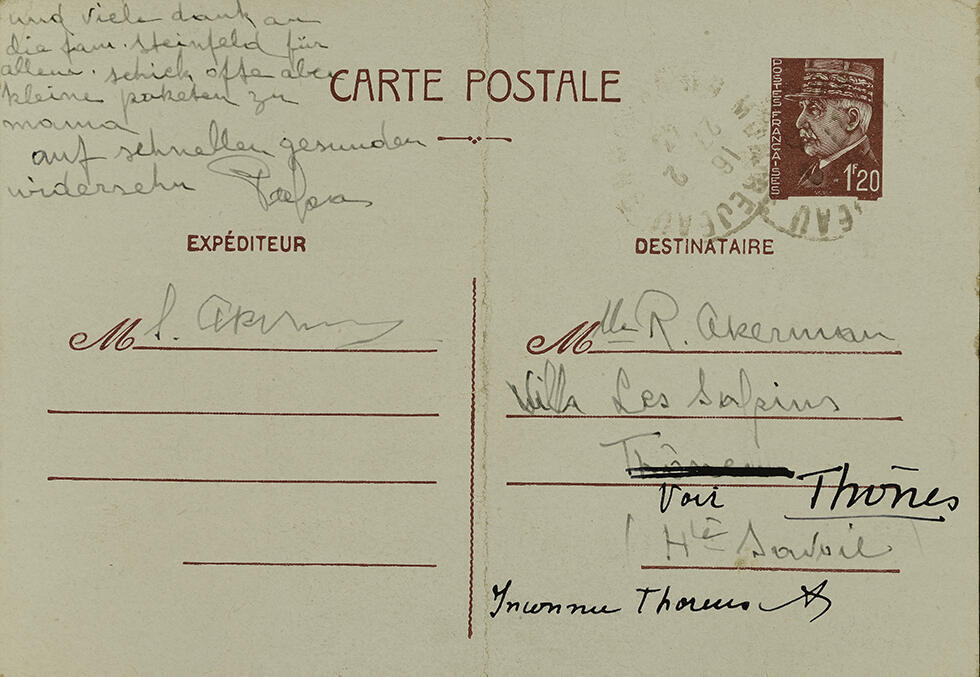 und viele dank an
die fam. Steinfeld für
allem. schick ofte aber
kleine paketen zu
mama
auf schnellen gesunden
widersehn Papa
CARTE POSTALE
POSTES FRANÇAISES
1F20
EXPÉDITEUR
DESTINATAIRE
M S. Akerman
M lle R. Akerman
Villa Les Salpins
Voir Thônes
(Hte Savoie
Inconnu Thorens